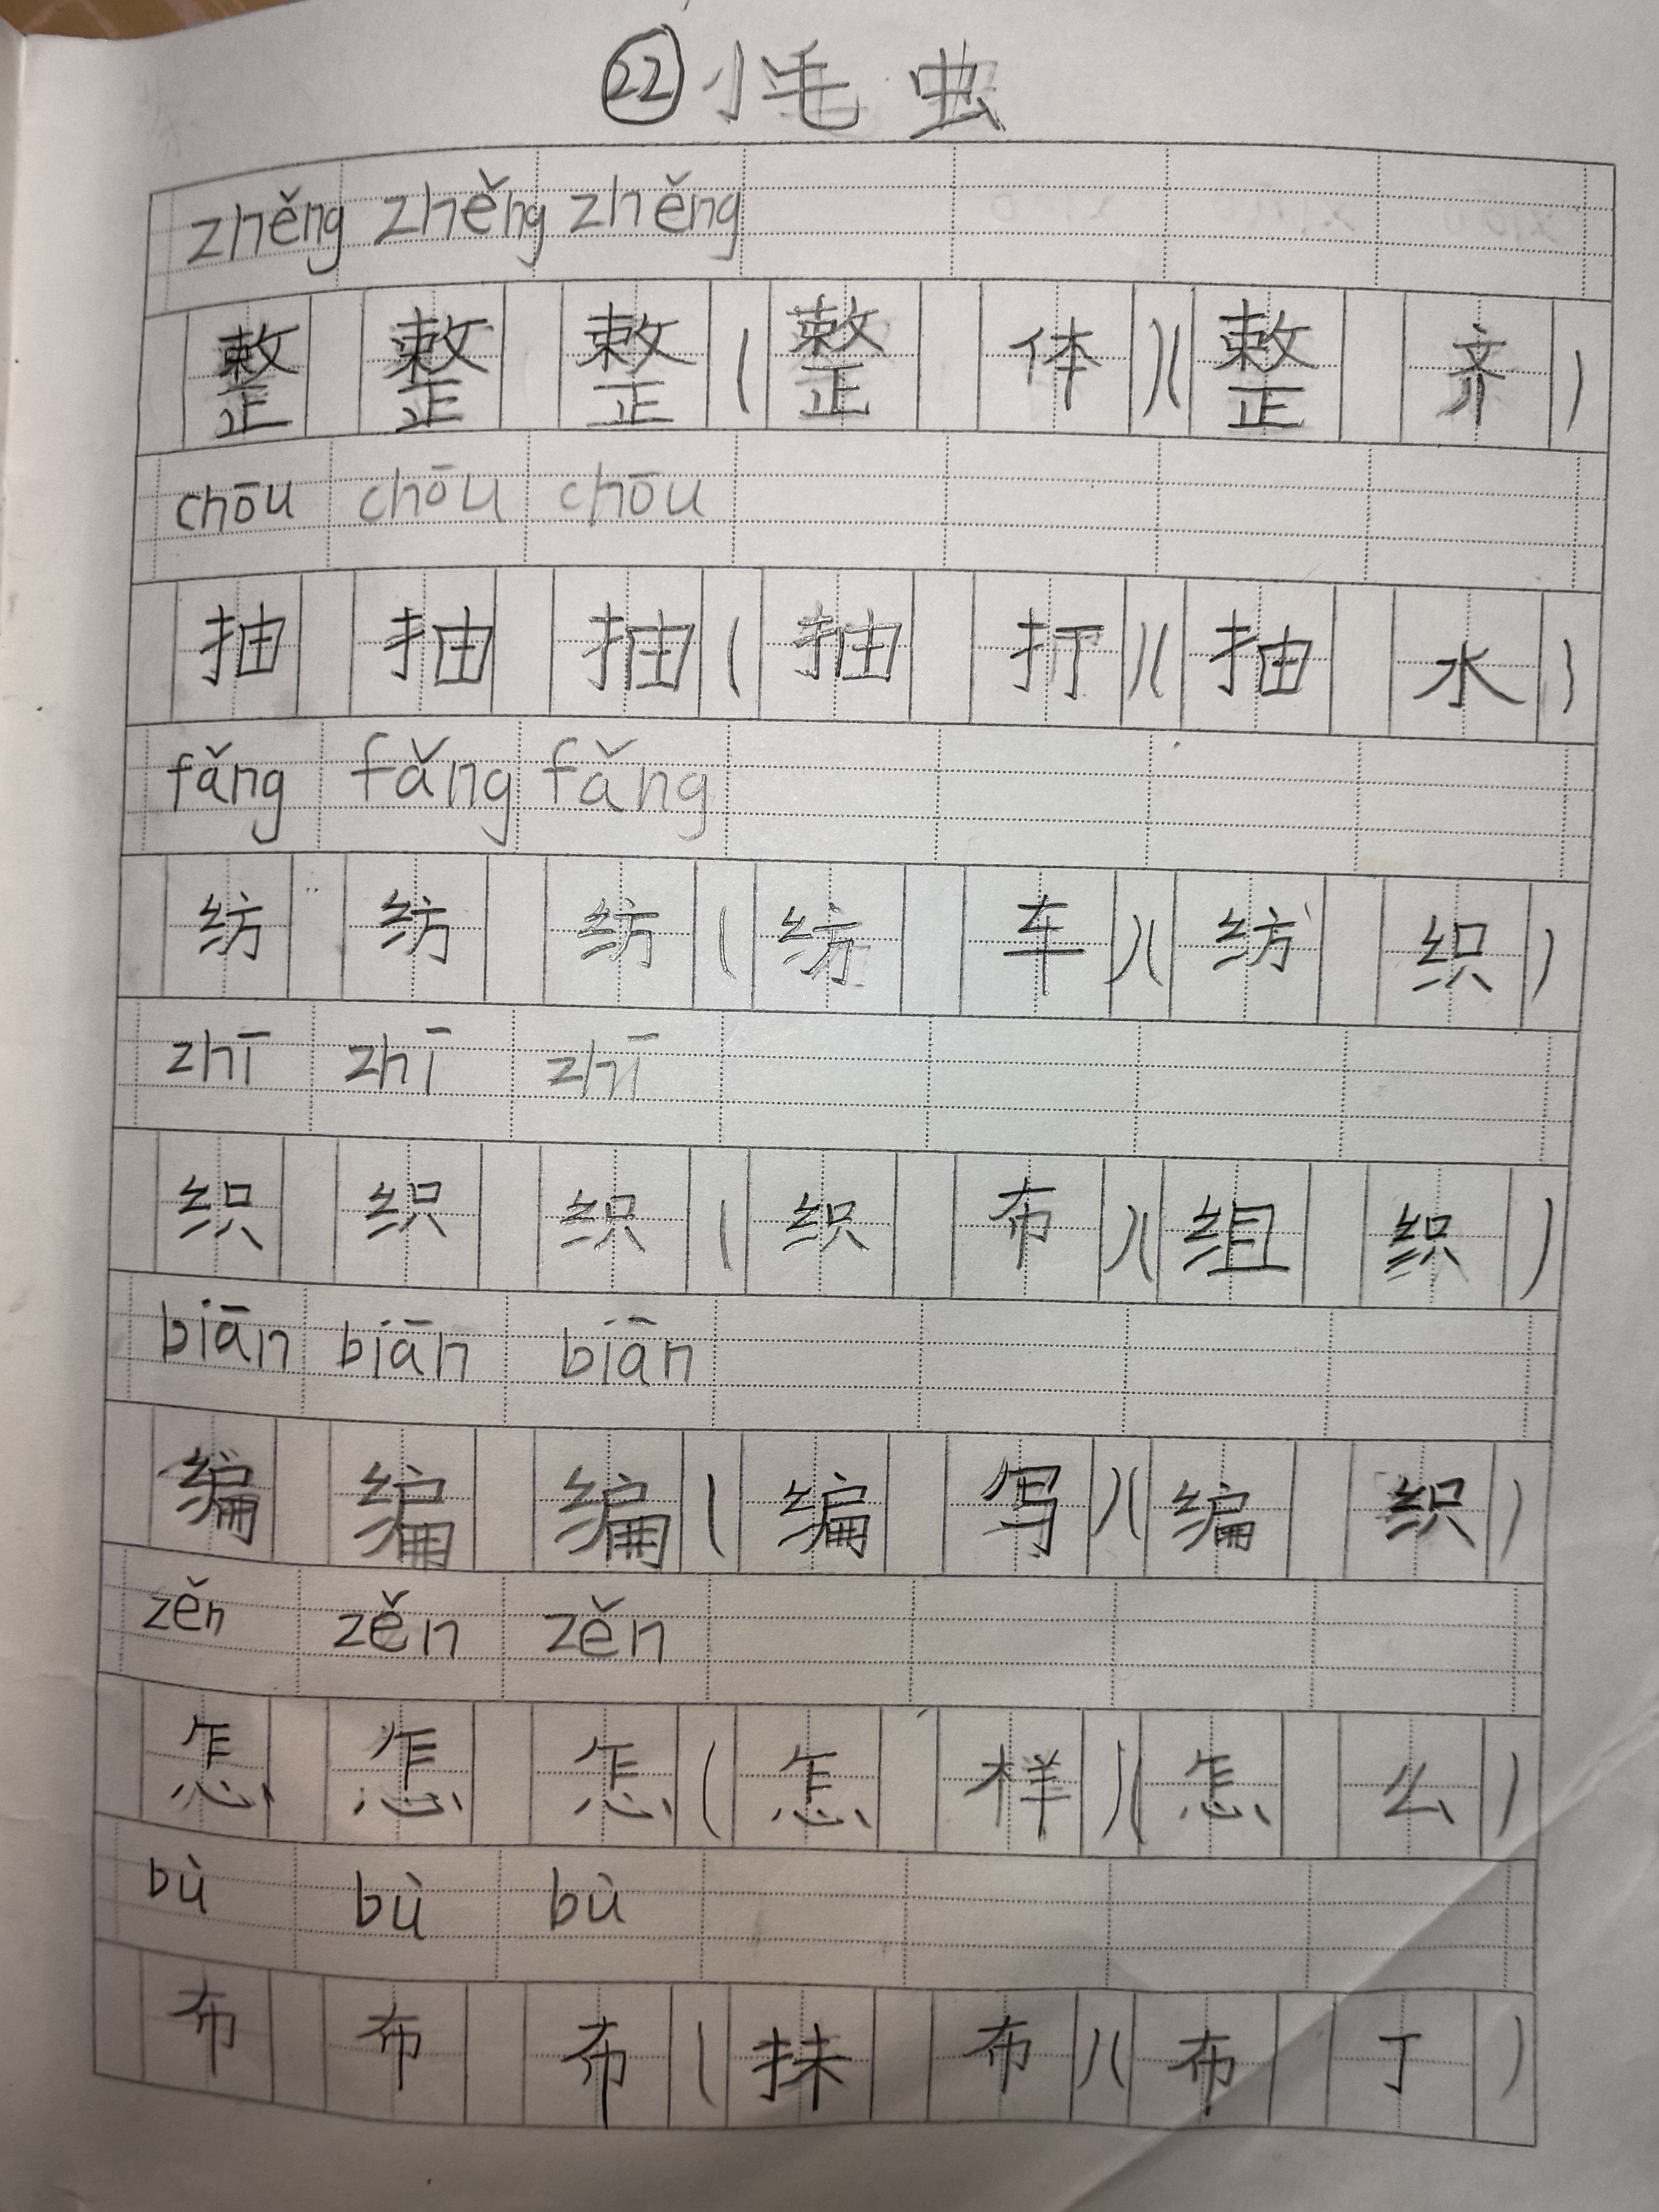 ㉒小毛虫
zhěng zhěng zhěng
整 整 整 (整体)(整齐)
chōu chōu chōu
抽 抽 抽 (抽打)(抽水)
fǎng fǎng fǎng
纺 纺 纺 (纺车)(纺织)
zhī zhī zhī
织 织 织 (织布)(组织)
biān biān biān
编 编 编 (编写)(编织)
zěn zěn zěn
怎 怎 怎 (怎样)(怎么)
bù bù bù
布 布 布 (抹布)(布丁)